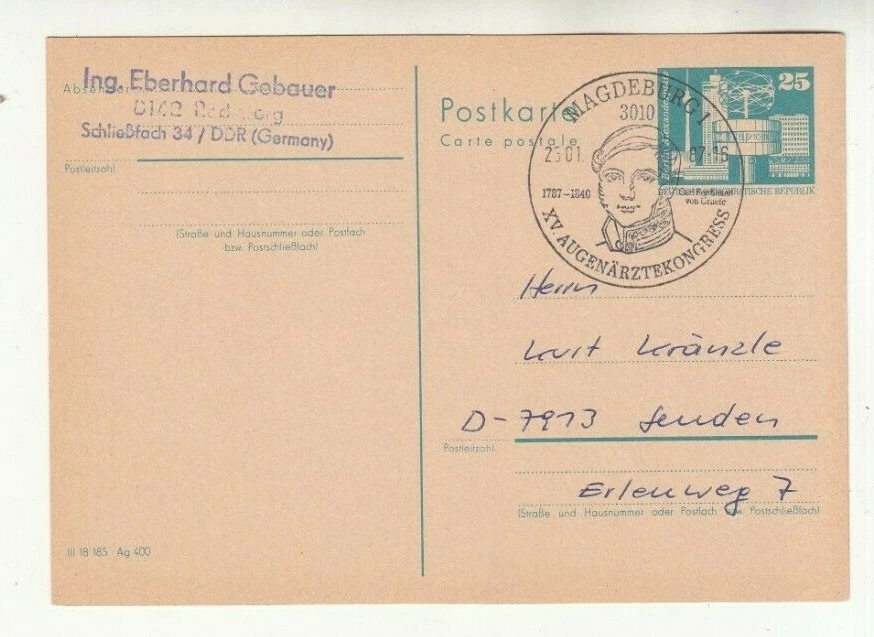 Absender
Ing. Eberhard Gebauer
8142
Schließfach 34 / DDR (Germany)
Postleitzahl
(Straße und Hausnummer oder Postfach
bzw. Postschließfach)
III 18 185 Ag 400
Postkarte
Carte postale
MAGDEBURG 1
3010
87-16
1787-1840
von Graefe
XV. AUGENÄRZTEKONGRESS
25
Berlin, Alexanderplatz
DEUTSCHE DEMOKRATISCHE REPUBLIK
Herrn
Kurt Kränzle
D-7913 Senden
Postleitzahl
Erlenweg 7
(Straße und Hausnummer oder Postfach bzw. Postschließfach)